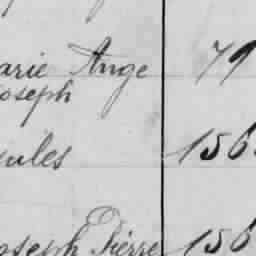 arie Ange 79
oseph
ules 156
oseph Pierre 156